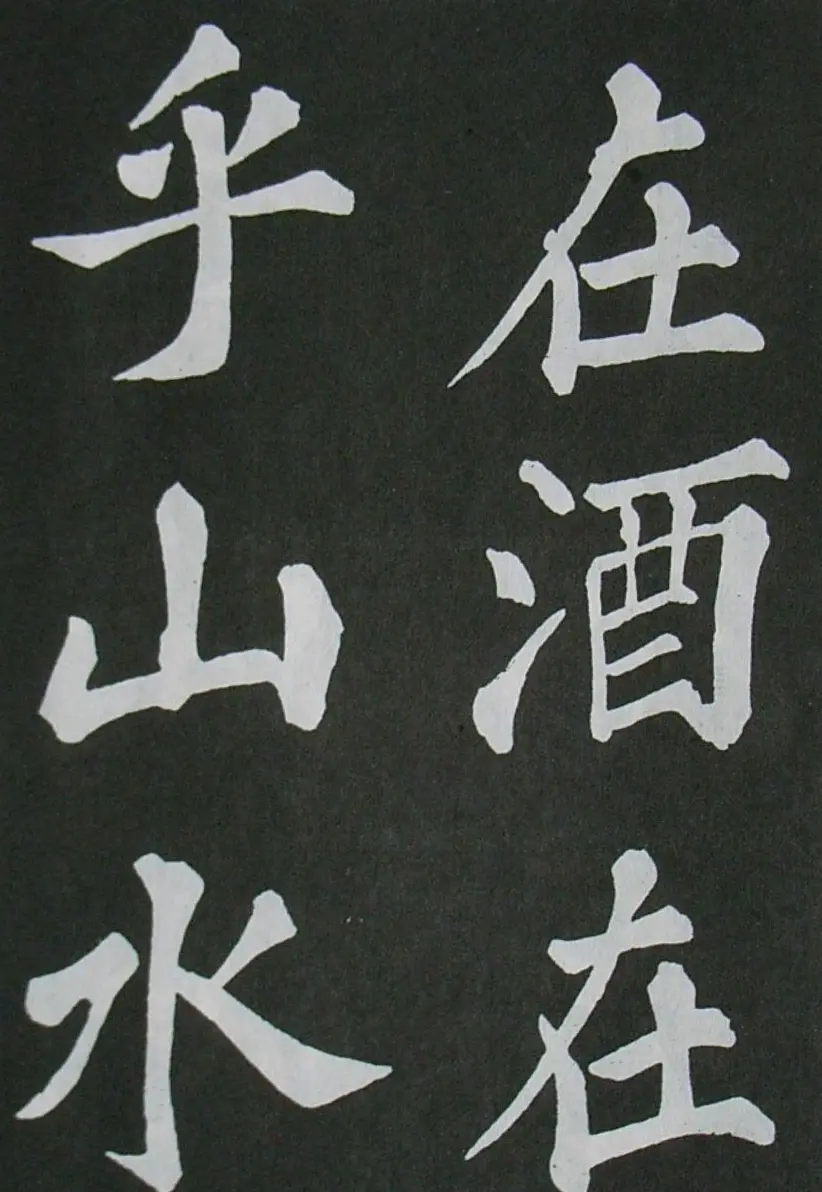 在酒在
乎山水